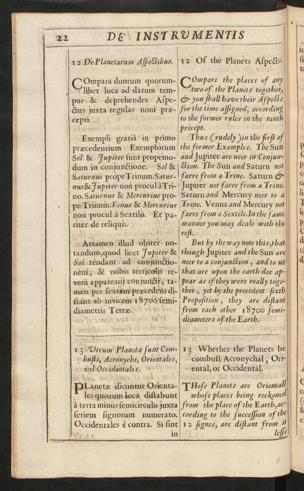 22 DE INSTRUMENTIS
12 De Planetarum Aspectibus.
COmpara duorum quorum-
libet loca ad datum tem-
pus & deprehendes Aspe-
ctus juxta regulas nonì præ-
cepti.
Exempli gratiâ in primo
præcedentium Exemplorum
Sol & Jupiter sunt propemo-
dum in conjunctione. Sol &
Saturnus prope Trinum. Satur-
nus & Jupiter non procul à Tri-
no. Saturnus & Mercurius pro-
pe Trinum. Venus & Mercurius
non procul à Sextilo. Et pa-
riter de reliquis.
Attamen illud obiter no-
tandum, quod licet Jupiter &
Sol tendant ad conjunctio-
nem, & nobis terricolis re-
verà appareant conjuncti, ta-
men per sextam præcedens di-
stant ab invicem 18700 semi-
diametris Terræ.
13 Utrum Planeta sunt Com-
busti, Acronychi, Orientales,
vel Occidentales.
PLanetæ dicuntur Orienta-
les quorum loca distabunt
à terra minus semicirculo juxta
seriem signorum numerato.
Occidentales è contra. Si sint
in
12 Of the Planets Aspects.
COmpare the places of any
two of the Planets together,
& you shall have their Aspects
for the time assigned, according
to the former rules in the ninth
precept.
Thus (rudely) in the first of
the former Examples. The Sun
and Jupiter are neer in Conjun-
ction. The Sun and Saturn not
farre from a Trine. Saturn &
Jupiter not farre from a Trine.
Saturn and Mercury neer to a
Trine. Venus and Mercury not
farre from a Sextile. In the same
manner you may deale with the
rest.
But by the way note this, that
though Jupiter and the Sun are
neer to a conjunction, and to us
that are upon the earth doe ap-
pear as if they were really toge-
ther, yet by the precedent sixth
Proposition, they are distant
from each other 18700 semi-
diameters of the Earth.
13 Whether the Planets be
combust Acronychal, Ori-
ental, or Occidental.
THose Planets are Orientall
whose places being reckoned
from the place of the Earth, ac-
cording to the succession of the
12 signes, are distant from it
lesse